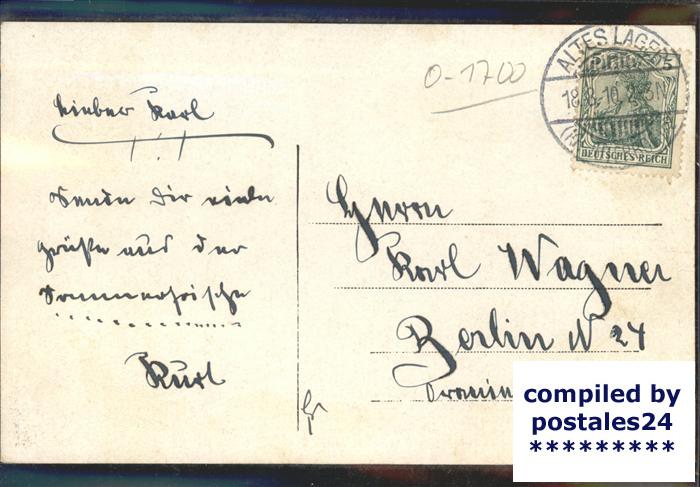 Lieber Karl
Sende dir viele
grüße aus der
Sommerfrische
Kurt
0-1700
ALTES LAGER
18.8.10.
5
DEUTSCHES REICH
Herrn
Karl Wagner
Berlin N 24
compiled by
postales24
*********